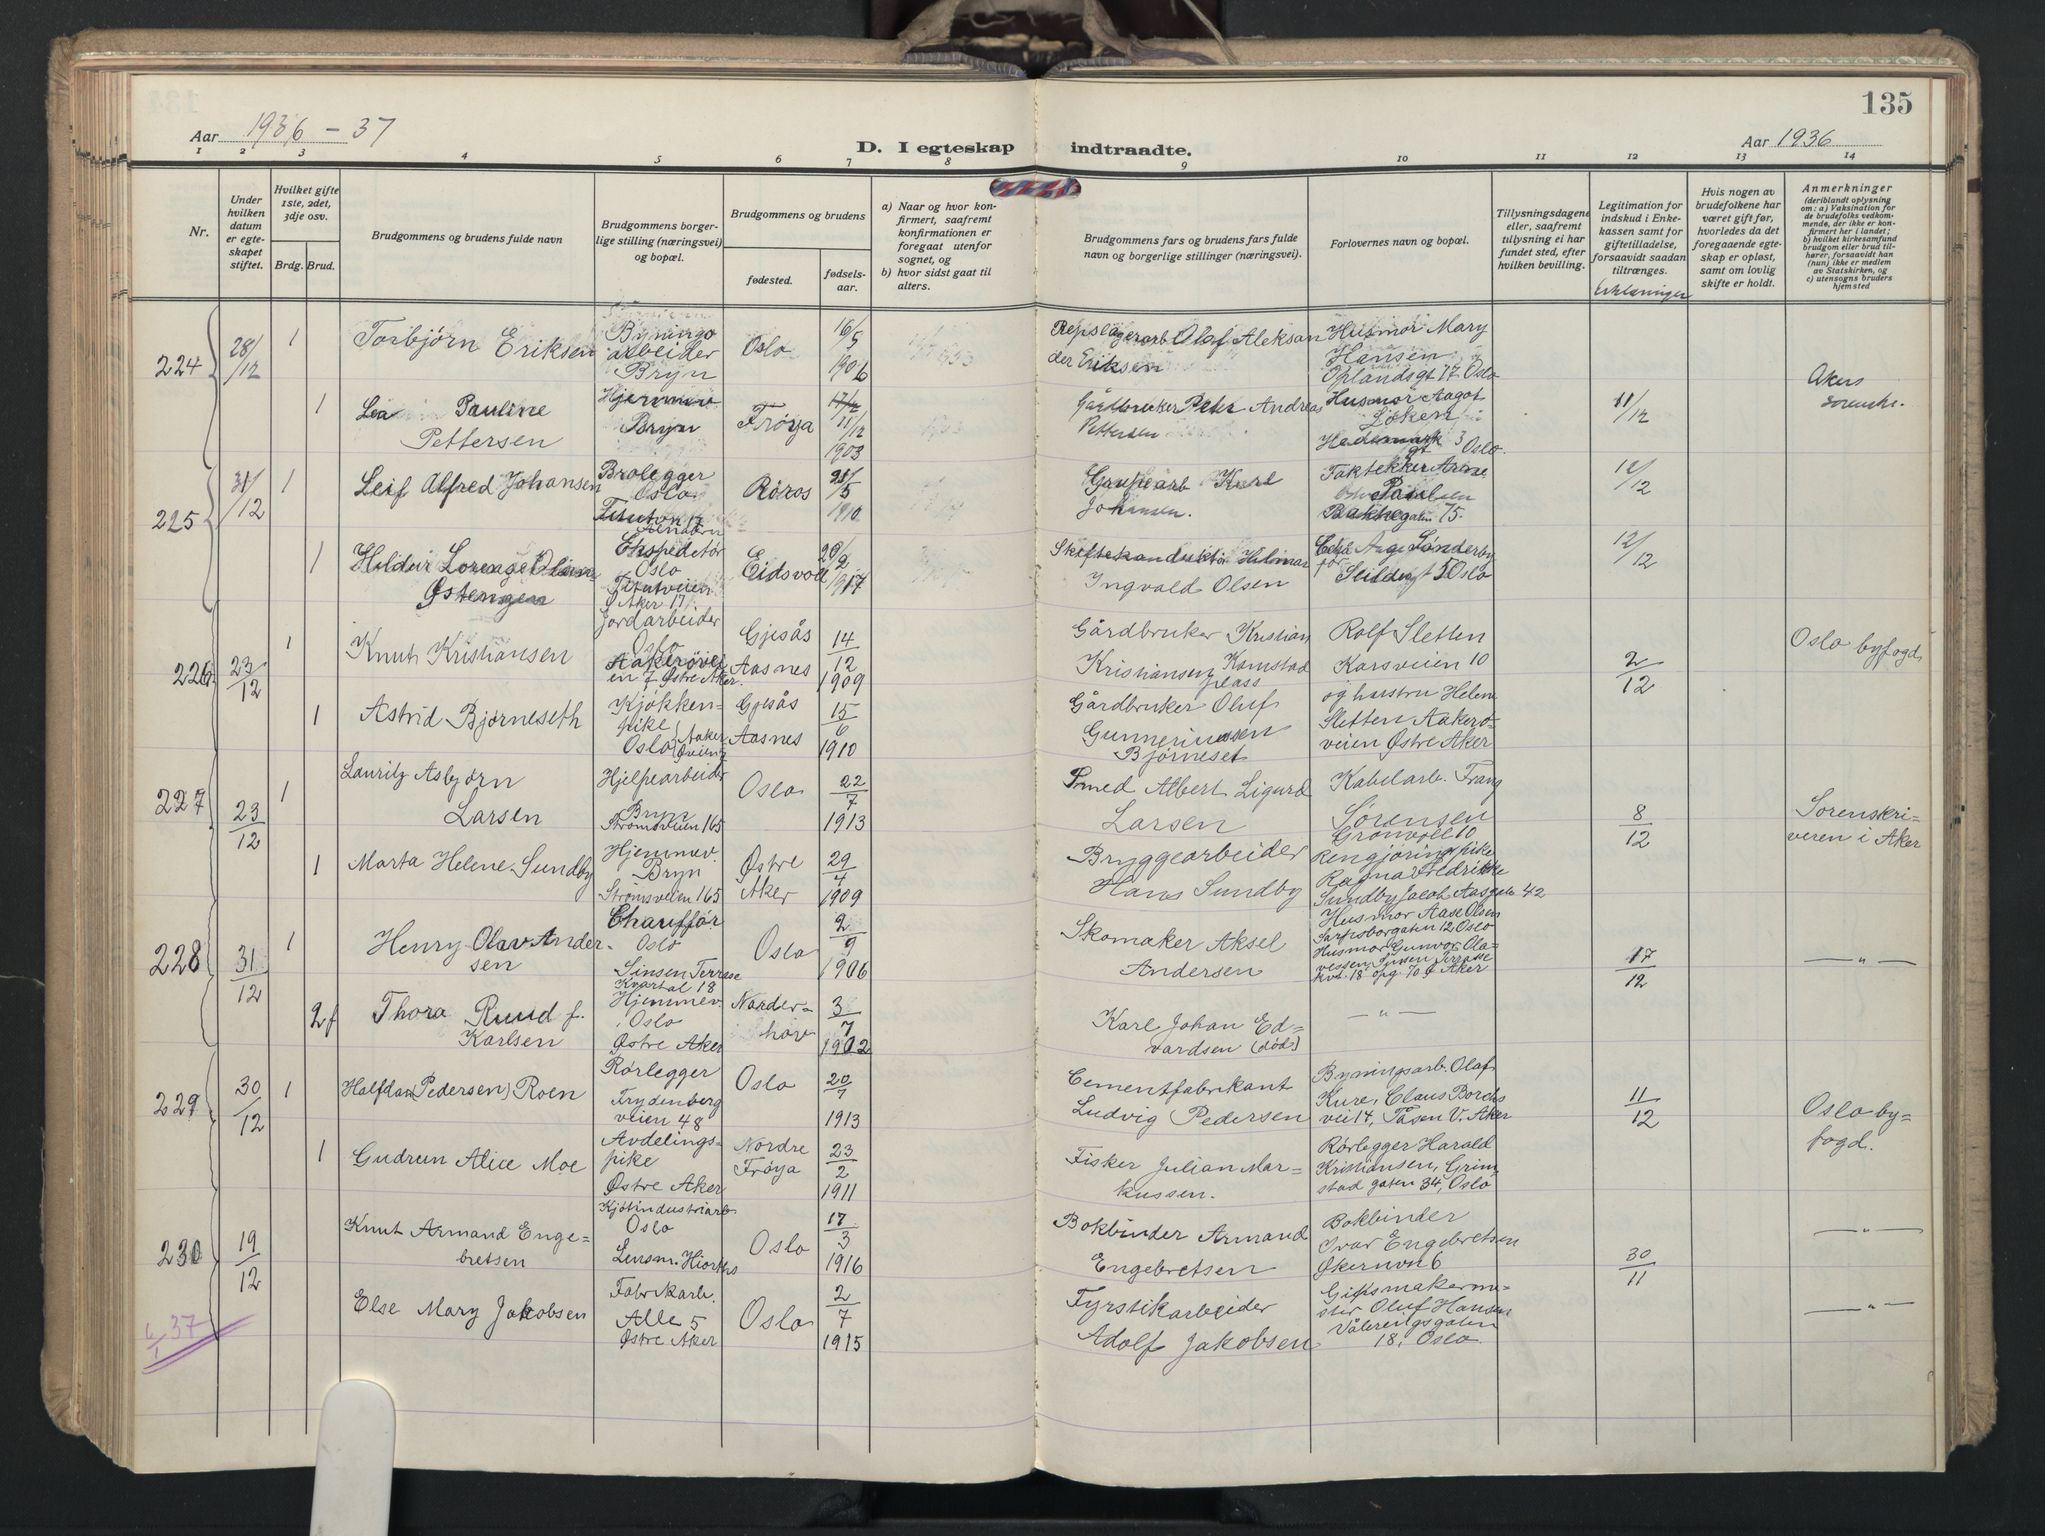 135
Aar 1936 - 37
D. I egteskap indtraadte.
Aar 1936
1 2 3 4 5 6 7 8 9 10 11 12 13 14
Nr.
Under hvilken datum er egteskapet stiftet.
Hvilket gifte 1ste, 2det, 3dje osv.
Brdg. Brud.
Brudgommens og brudens fulde navn
Brudgommens borgerlige stilling (næringsvei) og bopæl.
Brudgommens og brudens
fødested.
fødselsaar.
a) Naar og hvor konfirmert, saafremt konfirmationen er foregaat utenfor sognet, og
b) hvor sidst gaat til alters.
Brudgommens fars og brudens fars fulde navn og borgerlige stillinger (næringsvei).
Forlovernes navn og bopæl.
Tillysningsdagene eller, saafremt tillysning ei har fundet sted, efter hvilken bevilling.
Legitimation for indskud i Enkekassen samt for giftetilladelse, forsaavidt saadan tiltrænges.
Erklæringer
Hvis nogen av brudefolkene har været gift før, hvorledes da det foregaaende egteskap er opløst, samt om lovlig skifte er holdt.
Anmerkninger
(deriblandt oplysning om: a) Vaksination for de brudefolks vedkommende, der ikke er konfirmert her i landet; b) hvilket kirkesamfund brudgom eller brud tilhører, forsaavidt han (hun) ikke er medlem av Statskirken, og c) utensogns bruders hjemsted
224 28/12 1 Torbjørn Eriksen Bygnings arbeider Bryn Oslo 16/5 1906 Repslagerarb Olaf Aleksander Eriksen Husmor Mary Hansen Oplandsgt 17 Oslo
1 Lea Pauline Pettersen Hjemmev Bryn Frøya 17/2 11/12 1903 Gårdbruker Peter Andreas Pettersen Husmor Aagot Løken Hedemarksgt 3 Oslo 11/12 Akers sorenskr.
225 31/12 1 Leif Alfred Johansen Brolegger Oslo Røros 21/5 1910 Karl Johansen. Taktekker Arne Paulsen Bakkegaten 75. 12/12
1 Hildur Østengen Ekspeditør Oslo Aker 17 Eidsvoll 20/2 1917 Skiftekonduktør Hilmar Ingvald Olsen Aage Sønderby Seildugt 5 Oslo 12/12
226 23/12 1 Knut Kristiansen Jordarbeider Oslo Aakerøveien 7 Østre Aker. Gjesås Aasnes 14/12 1909 Gårdbruker Kristian Kristiansen, Kamstad plass Rolf Sletten Karsveien 10 2/12 Oslo byfogd
1 Astrid Bjørneseth Kjøkkenpike Oslo Gjesås Aasnes 15/6 1910 Gårdbruker Oluf Gunneriussen Bjørneset og hustru Helene Sletten Aakerøveien Østre Aker
227 23/12 1 Lauritz Asbjørn Larsen Hjelpearbeider Bryn Strømsveien 165 Oslo 22/7 1913 Smed Albert Sigurd Larsen Kabelarb. Franz Sørensen Grønvoll 10 8/12 Sorenskriveren i Aker
1 Marta Helene Sundby Hjemmev. Bryn Strømsveien 165 Østre Aker 29/4 1909 Bryggearbeider Hans Sundby Rengjøringspike Ragna Fredrikke Sundby Jacob Aasgate 42
228 31/12 1 Henry Olav Andersen Chauffør Oslo Sinsen Terrasse Kvartal 18 Oslo 2/9 1906 Skomaker Aksel Andersen Husmor Aase Olsen Sarpsborgaten 12, Oslo Husmor Gunvor Olavessen, Sinsen Terrasse kvt. 18 opg. 70 Ø Aker 17/12 — " —
2f Thora Ruud f. Karlsen Hjemmev. Oslo Østre Aker Norderhov 3/7 1902 Karl Johan Edvardsen (død) — " —
229 30/12 1 Halfdan (Pedersen) Roen Rørlegger Frydenbergveien 48 Oslo 20/7 1913 Cementfabrikant Ludvig Pedersen Bygningsarb. Olaf Kure, Claus Borchs vei 14, Tåsen V. Aker 11/12 Oslo byfogd.
1 Gudrun Alice Moe Avdelingspike Østre Aker Nordre Frøya 23/2 1911 Fisker Julian Markussen. Rørlegger Harald Kristiansen, Grimstad gaten 34, Oslo
230 19/12 Knut Armand Engebretsen Kjøtindustriarb. Oslo Lensm. Hiorths Oslo 17/3 1916 Bokbinder Armand Engebretsen Bokbinder Ivar Engebretsen Økernvn 6 30/11 — " —
Else Mary Jakobsen Fabrikarb. Alle 5 Østre Aker Oslo 2/7 1915 Fyrstikarbeider Adolf Jakobsen Gipsmakermester Oluf Hansen Vålerengsgaten 18, Oslo. — " —
6/1 37